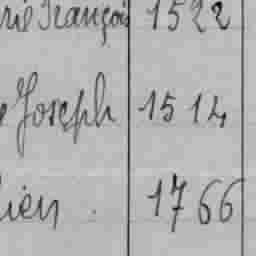 rie François 1522
Joseph 1514
lien . 1766